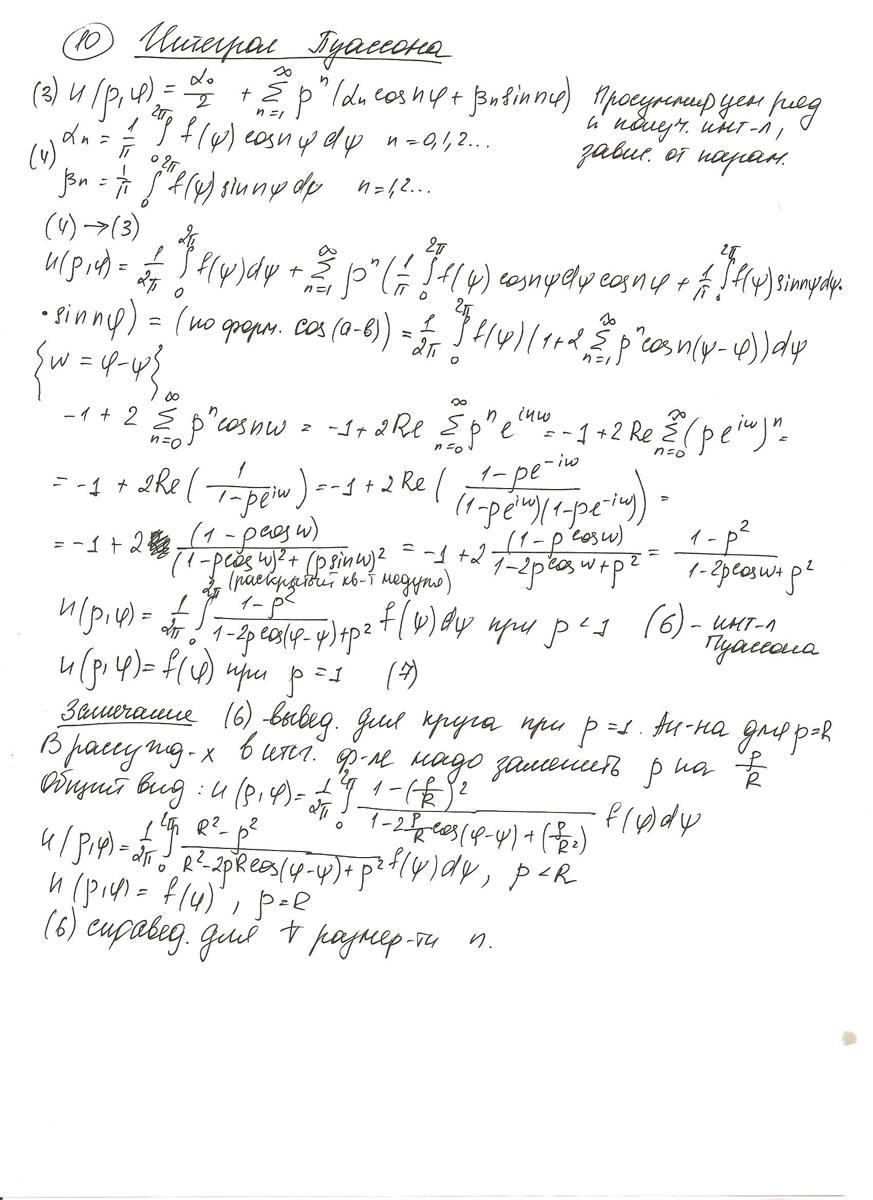 10 Интеграл Пуассона
(3) u(ρ,φ) = α₀/2 + Σ_{n=1}^{∞} ρⁿ(αₙ cos nφ + βₙ sin nφ) Просуммируем ряд
и получ. инт-л,
завис. от парам.
(4) αₙ = 1/π ∫₀^{2π} f(ψ) cos nψ dψ n = 0,1,2...
βₙ = 1/π ∫₀^{2π} f(ψ) sin nψ dψ n = 1,2...
(4) → (3)
u(ρ,φ) = 1/2π ∫₀^{2π} f(ψ)dψ + Σ_{n=1}^{∞} ρⁿ(1/π ∫₀^{2π} f(ψ) cos nψ dψ cos nφ + 1/π ∫₀^{2π} f(ψ) sin nψ dψ·
· sin nφ) = (по форм. cos(a-b)) = 1/2π ∫₀^{2π} f(ψ)(1+2 Σ_{n=1}^{∞} ρⁿ cos n(ψ-φ))dψ
{w = φ-ψ}
-1 + 2 Σ_{n=0}^{∞} ρⁿ cos nw = -1 + 2Re Σ_{n=0}^{∞} ρⁿ e^{inw} = -1 + 2Re Σ_{n=0}^{∞} (ρe^{iw})ⁿ =
= -1 + 2Re(1/(1-ρe^{iw})) = -1 + 2Re((1-ρe^{-iw})/((1-ρe^{iw})(1-ρe^{-iw}))) =
= -1 + 2 (1-ρcos w)/((1-ρcos w)² + (ρsin w)²) = -1 + 2 (1-ρcos w)/(1-2ρcos w+ρ²) = (1-ρ²)/(1-2ρcos w+ρ²)
(раскрытый кв-т модуля)
u(ρ,φ) = 1/2π ∫₀^{2π} (1-ρ²)/(1-2ρcos(φ-ψ)+ρ²) f(ψ)dψ при ρ<1 (6) - инт-л
Пуассона
u(ρ,φ) = f(φ) при ρ=1 (7)
Замечание (6) вывед. для круга при ρ=1. Ан-на для ρ=R
В рассужд-х в итог. ф-ле надо заменить ρ на ρ/R
Общий вид: u(ρ,φ) = 1/2π ∫₀^{2π} (1-(ρ/R)²)/(1-2 ρ/R cos(φ-ψ) + (ρ/R²)) f(ψ)dψ
u(ρ,φ) = 1/2π ∫₀^{2π} (R²-ρ²)/(R²-2ρRcos(φ-ψ)+ρ²) f(ψ)dψ, ρ<R
u(ρ,φ) = f(φ), ρ=R
(6) справед. для ∀ размер-ти n.